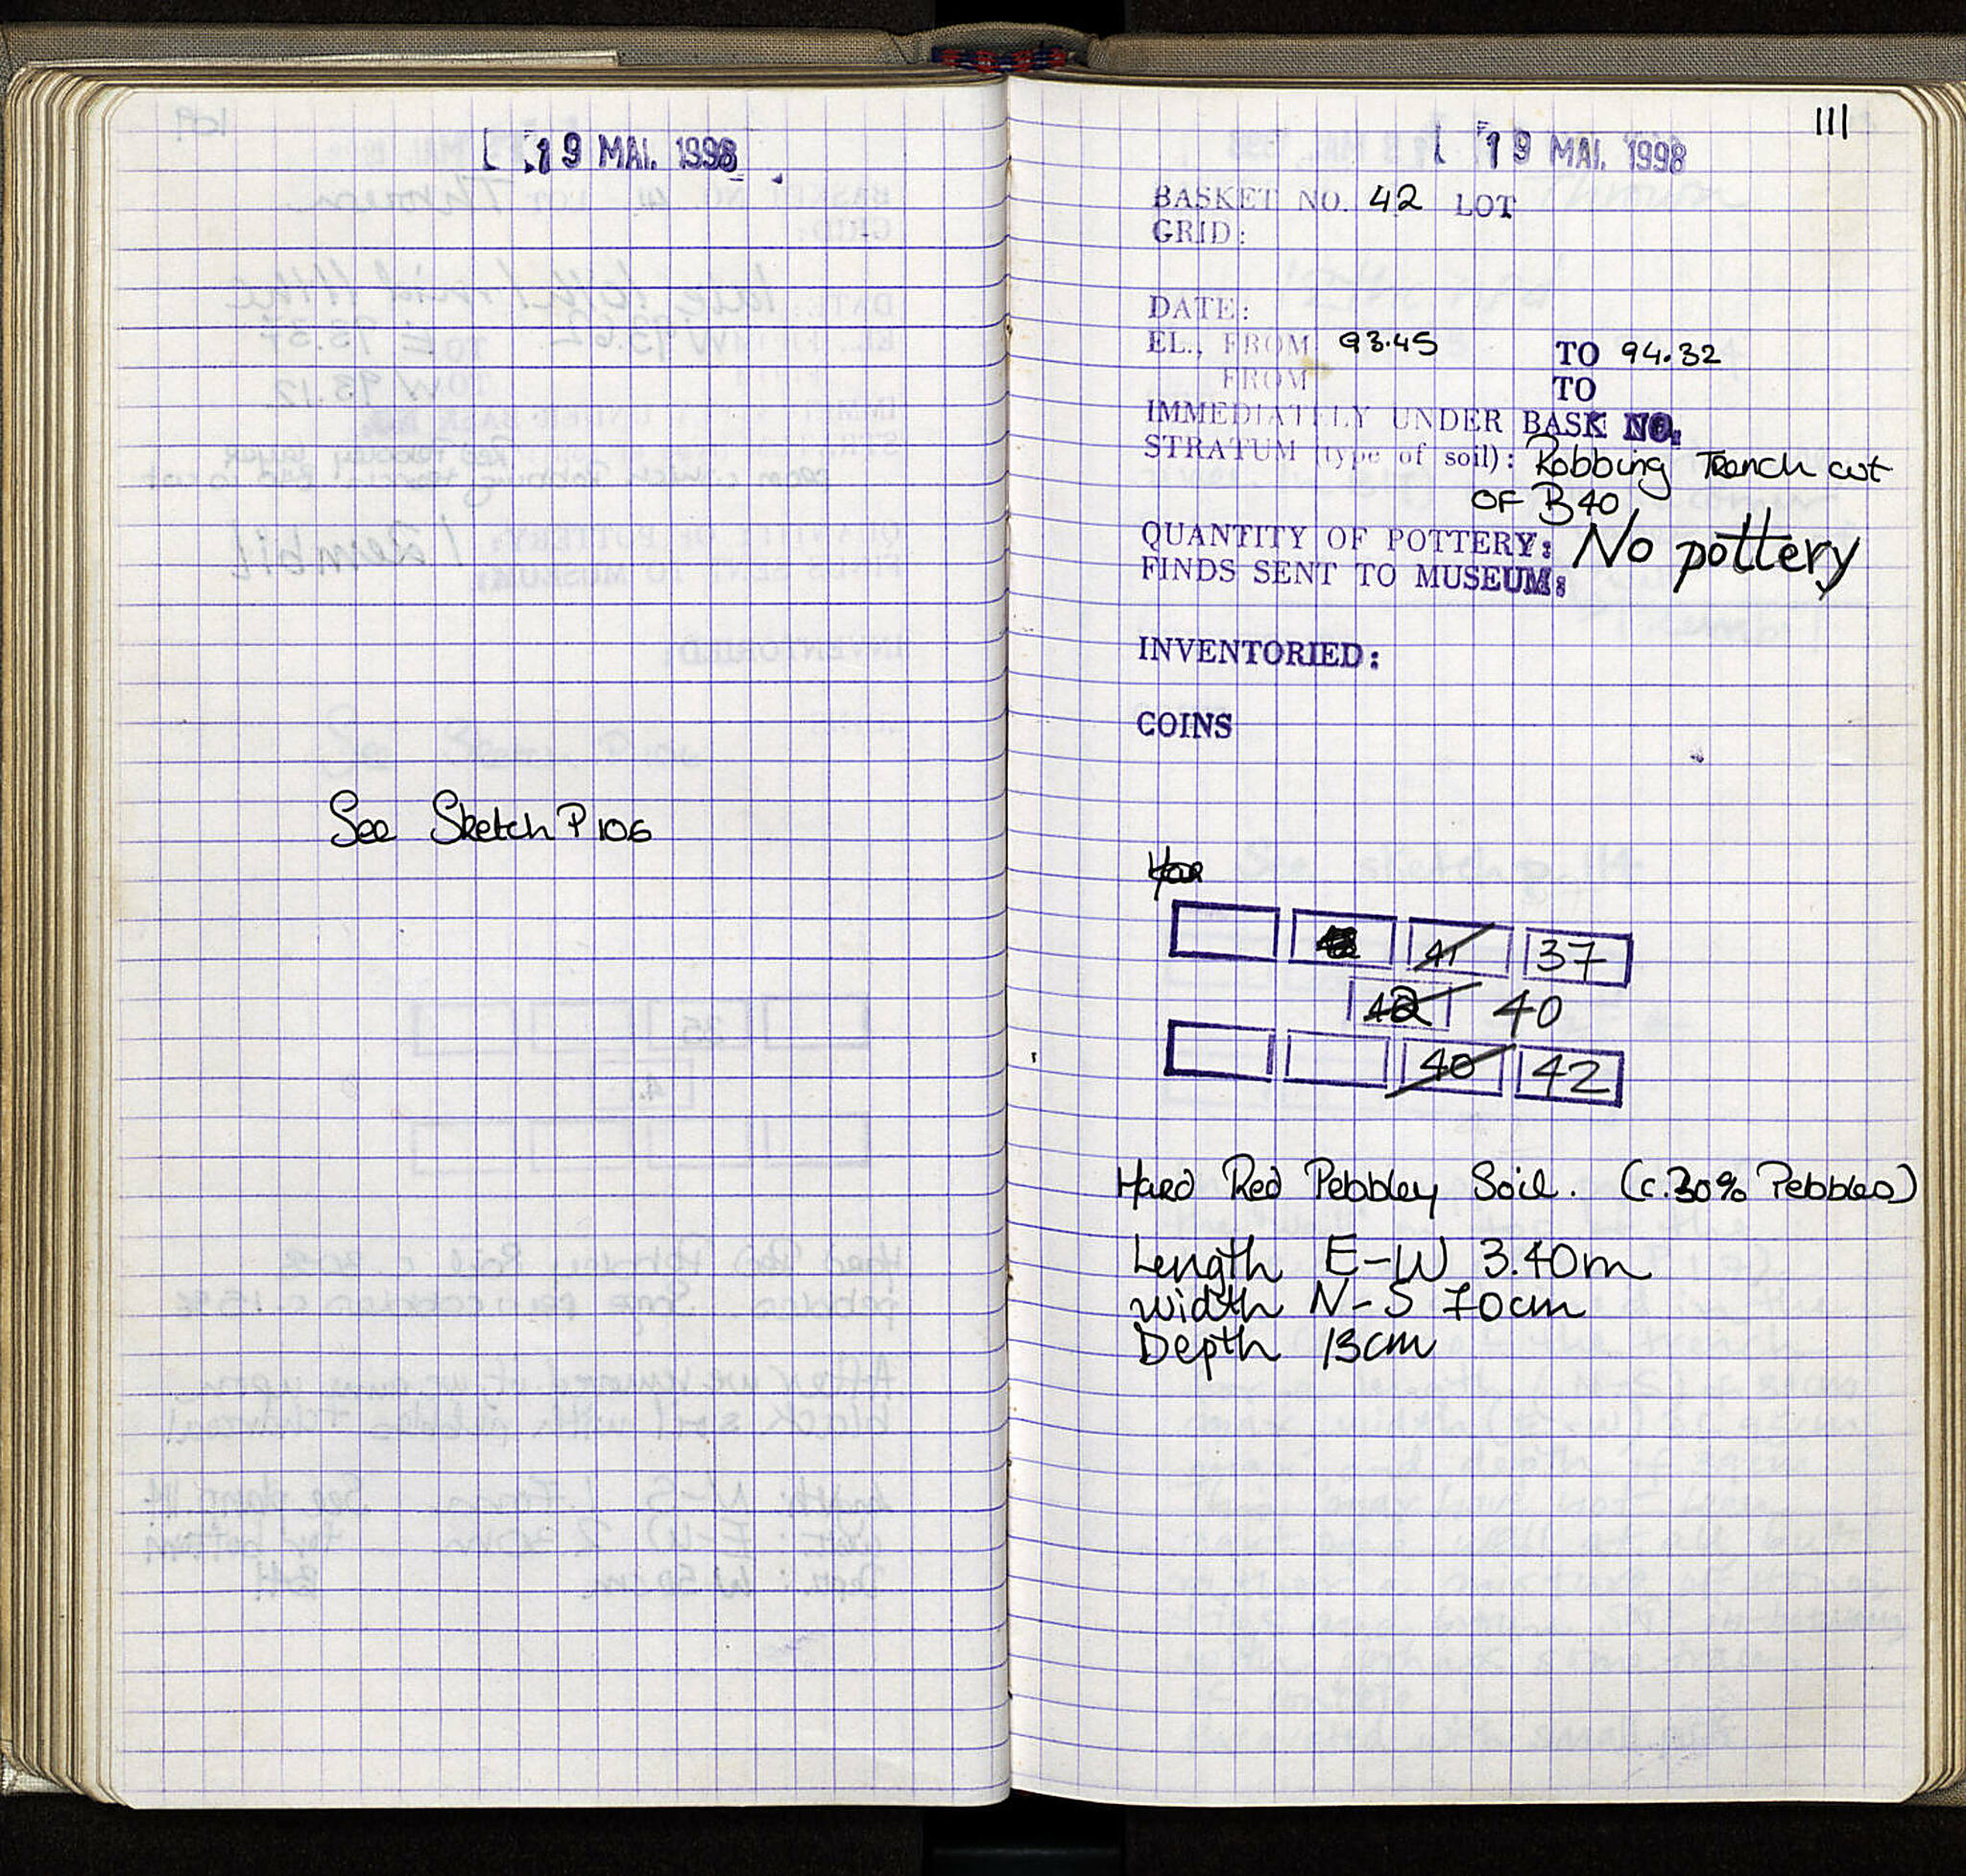 19 MAI. 1998
See Sketch P 106
111
19 MAI. 1998
BASKET NO. 42 LOT
GRID:
DATE:
EL., FROM 93.45 TO 94.32
FROM TO
IMMEDIATELY UNDER BASK NO.
STRATUM (type of soil): Robbing Trench cut
OF B40
QUANTITY OF POTTERY: No pottery
FINDS SENT TO MUSEUM:
INVENTORIED:
COINS
41 37
42 40
40 42
Hard Red Pebbley Soil. (c.30% Pebbles)
Length E-W 3.40m
width N-S 70cm
Depth 13cm